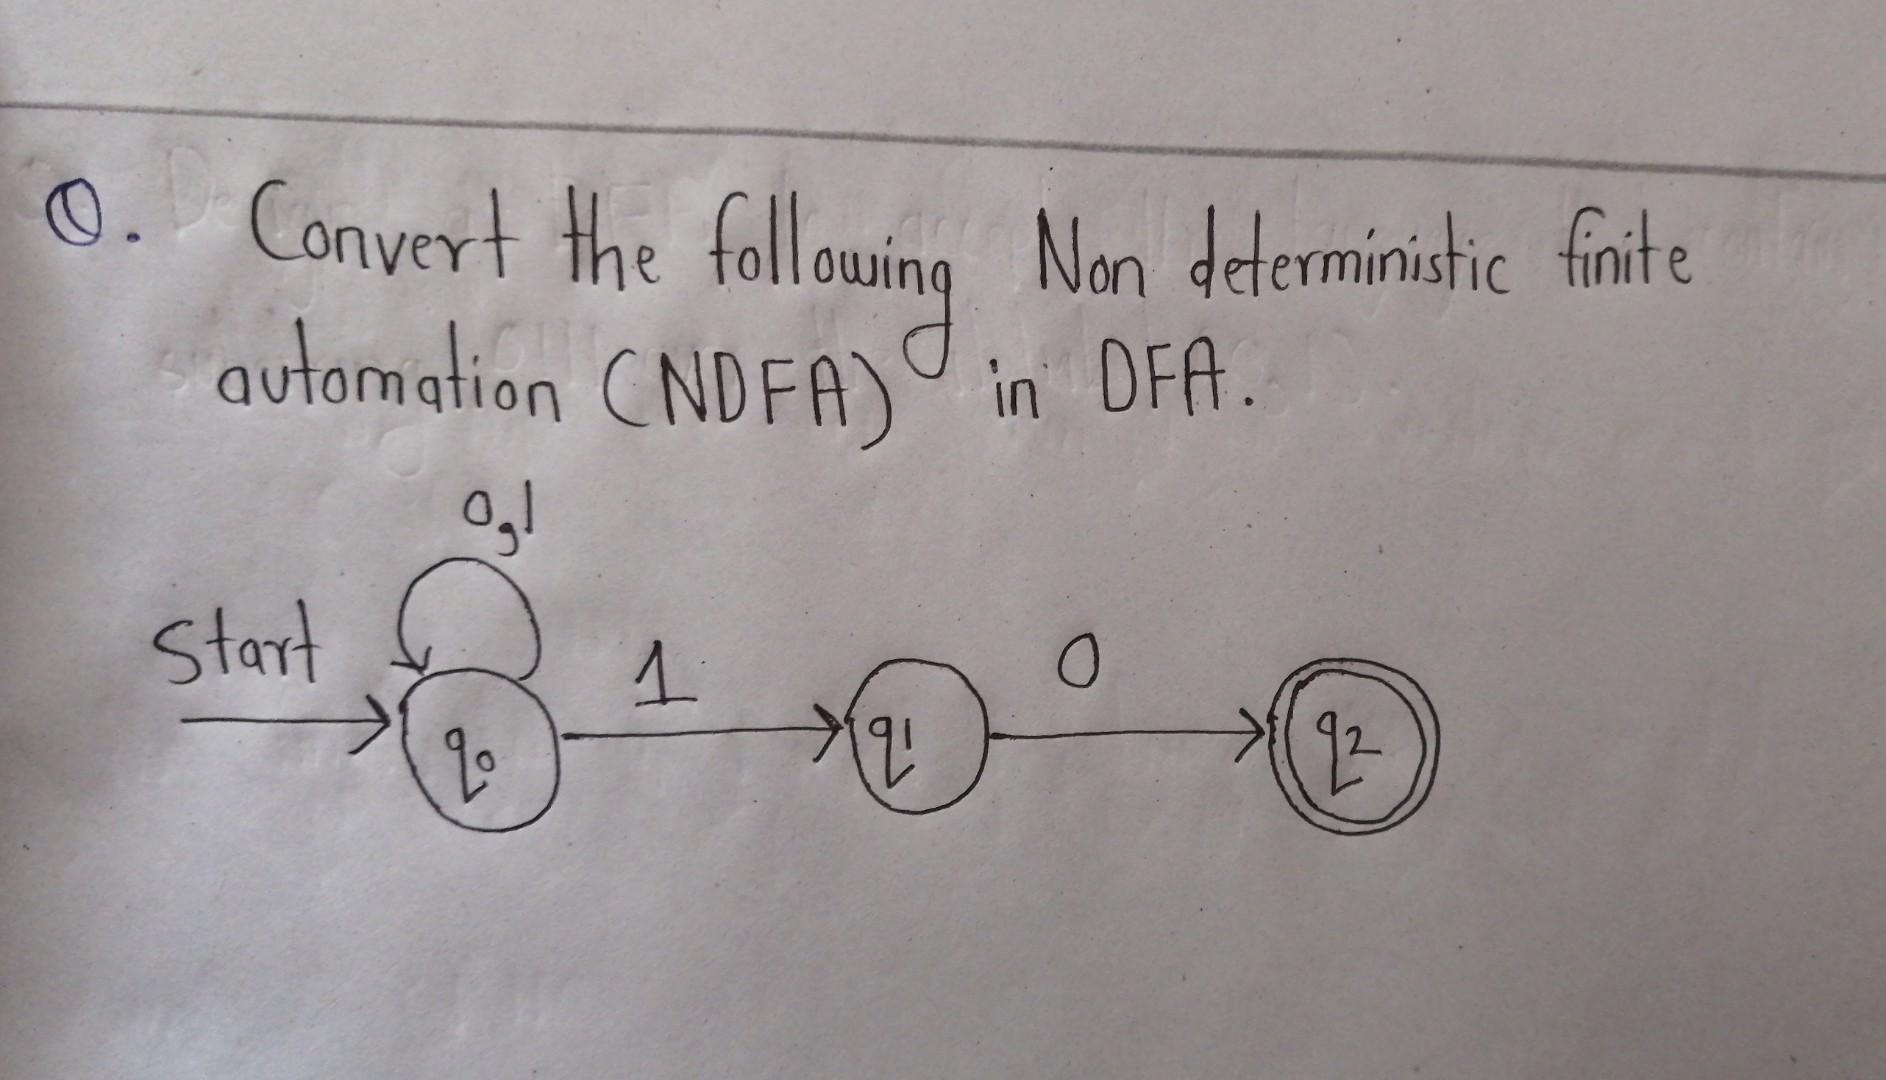 Q. Convert the following Non deterministic finite
automation (NDFA) in DFA.
0,1
Start
1
0
q0
q1
q2